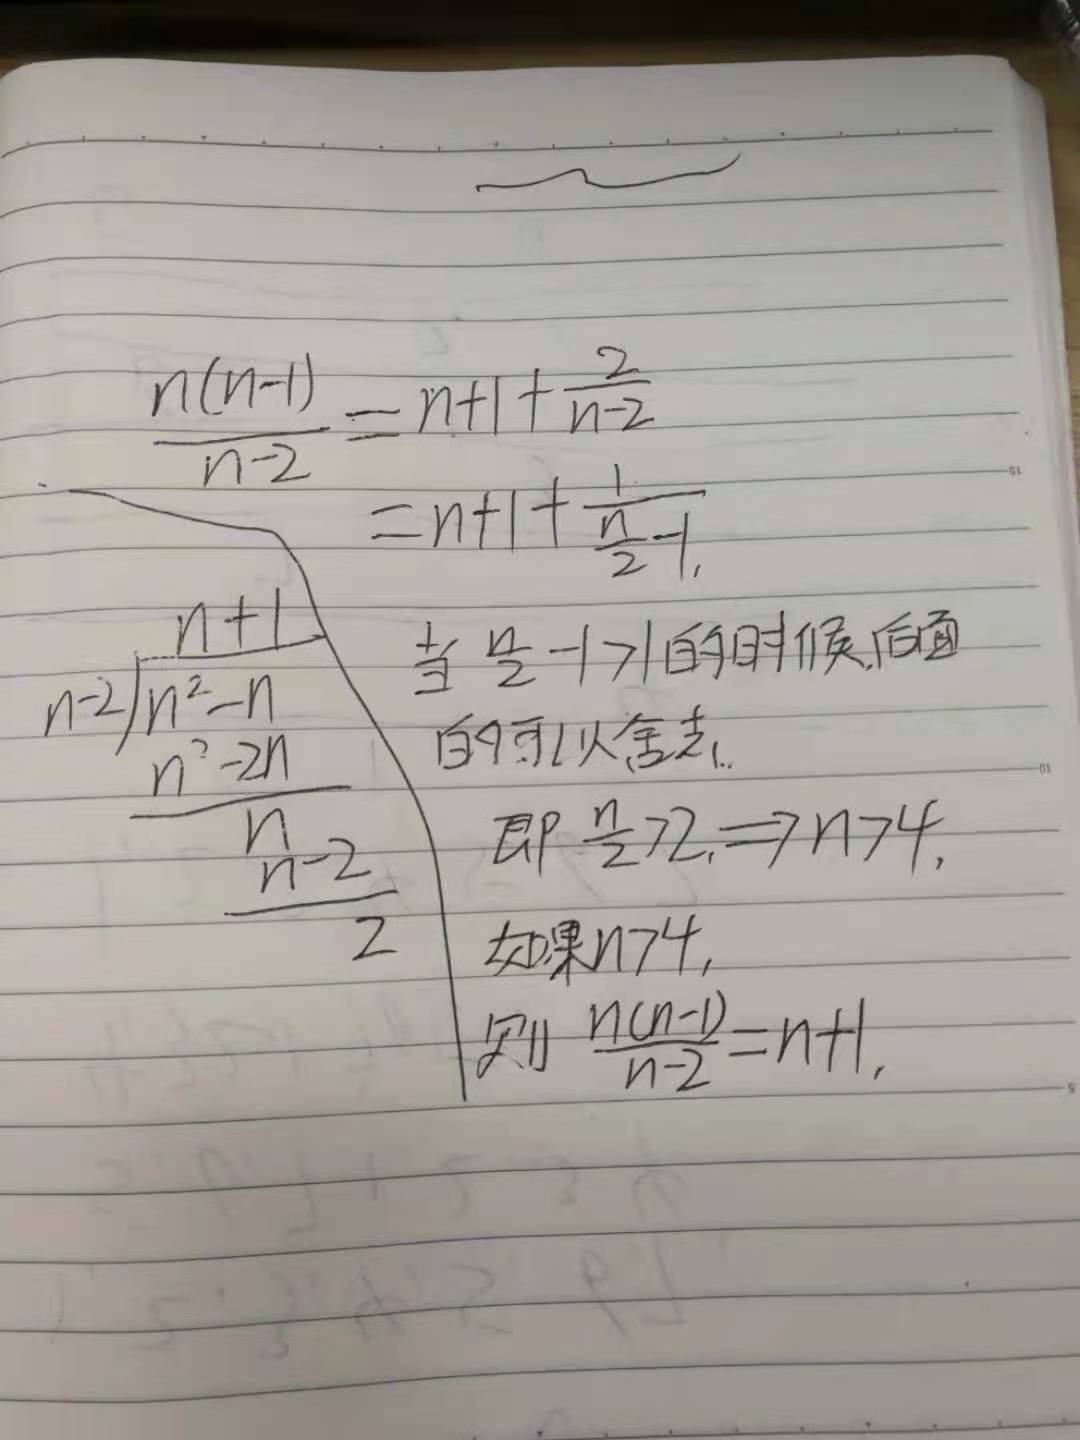 n(n-1)/(n-2) = n+1+2/(n-2)
=n+1+1/(n/2-1).
n+1
n-2)n²-n
n²-2n
n
n-2
2
当 n/2 -1>1的时候,后面
的可以舍去..
即 n/2>2,⇒n>4,
如果n>4,
则 n(n-1)/(n-2)=n+1,
15
10
5